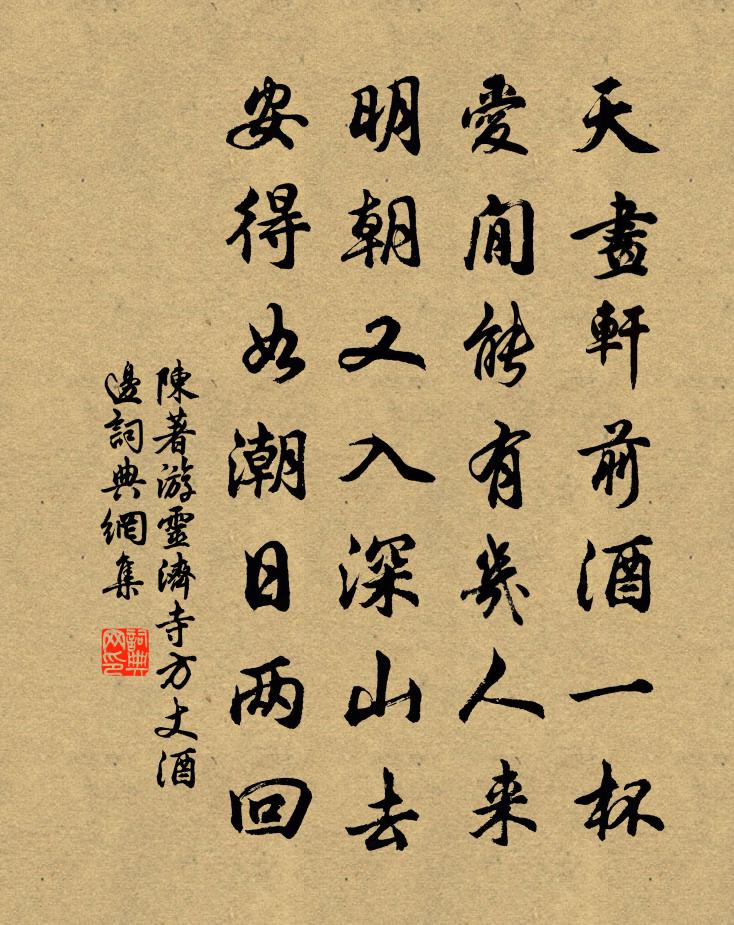 天畫軒前酒一杯
愛閒能有幾人来
明朝又入深山去
安得如潮日两回
陳著游靈濟寺方丈酒
邊詞典網集
詞典
网印